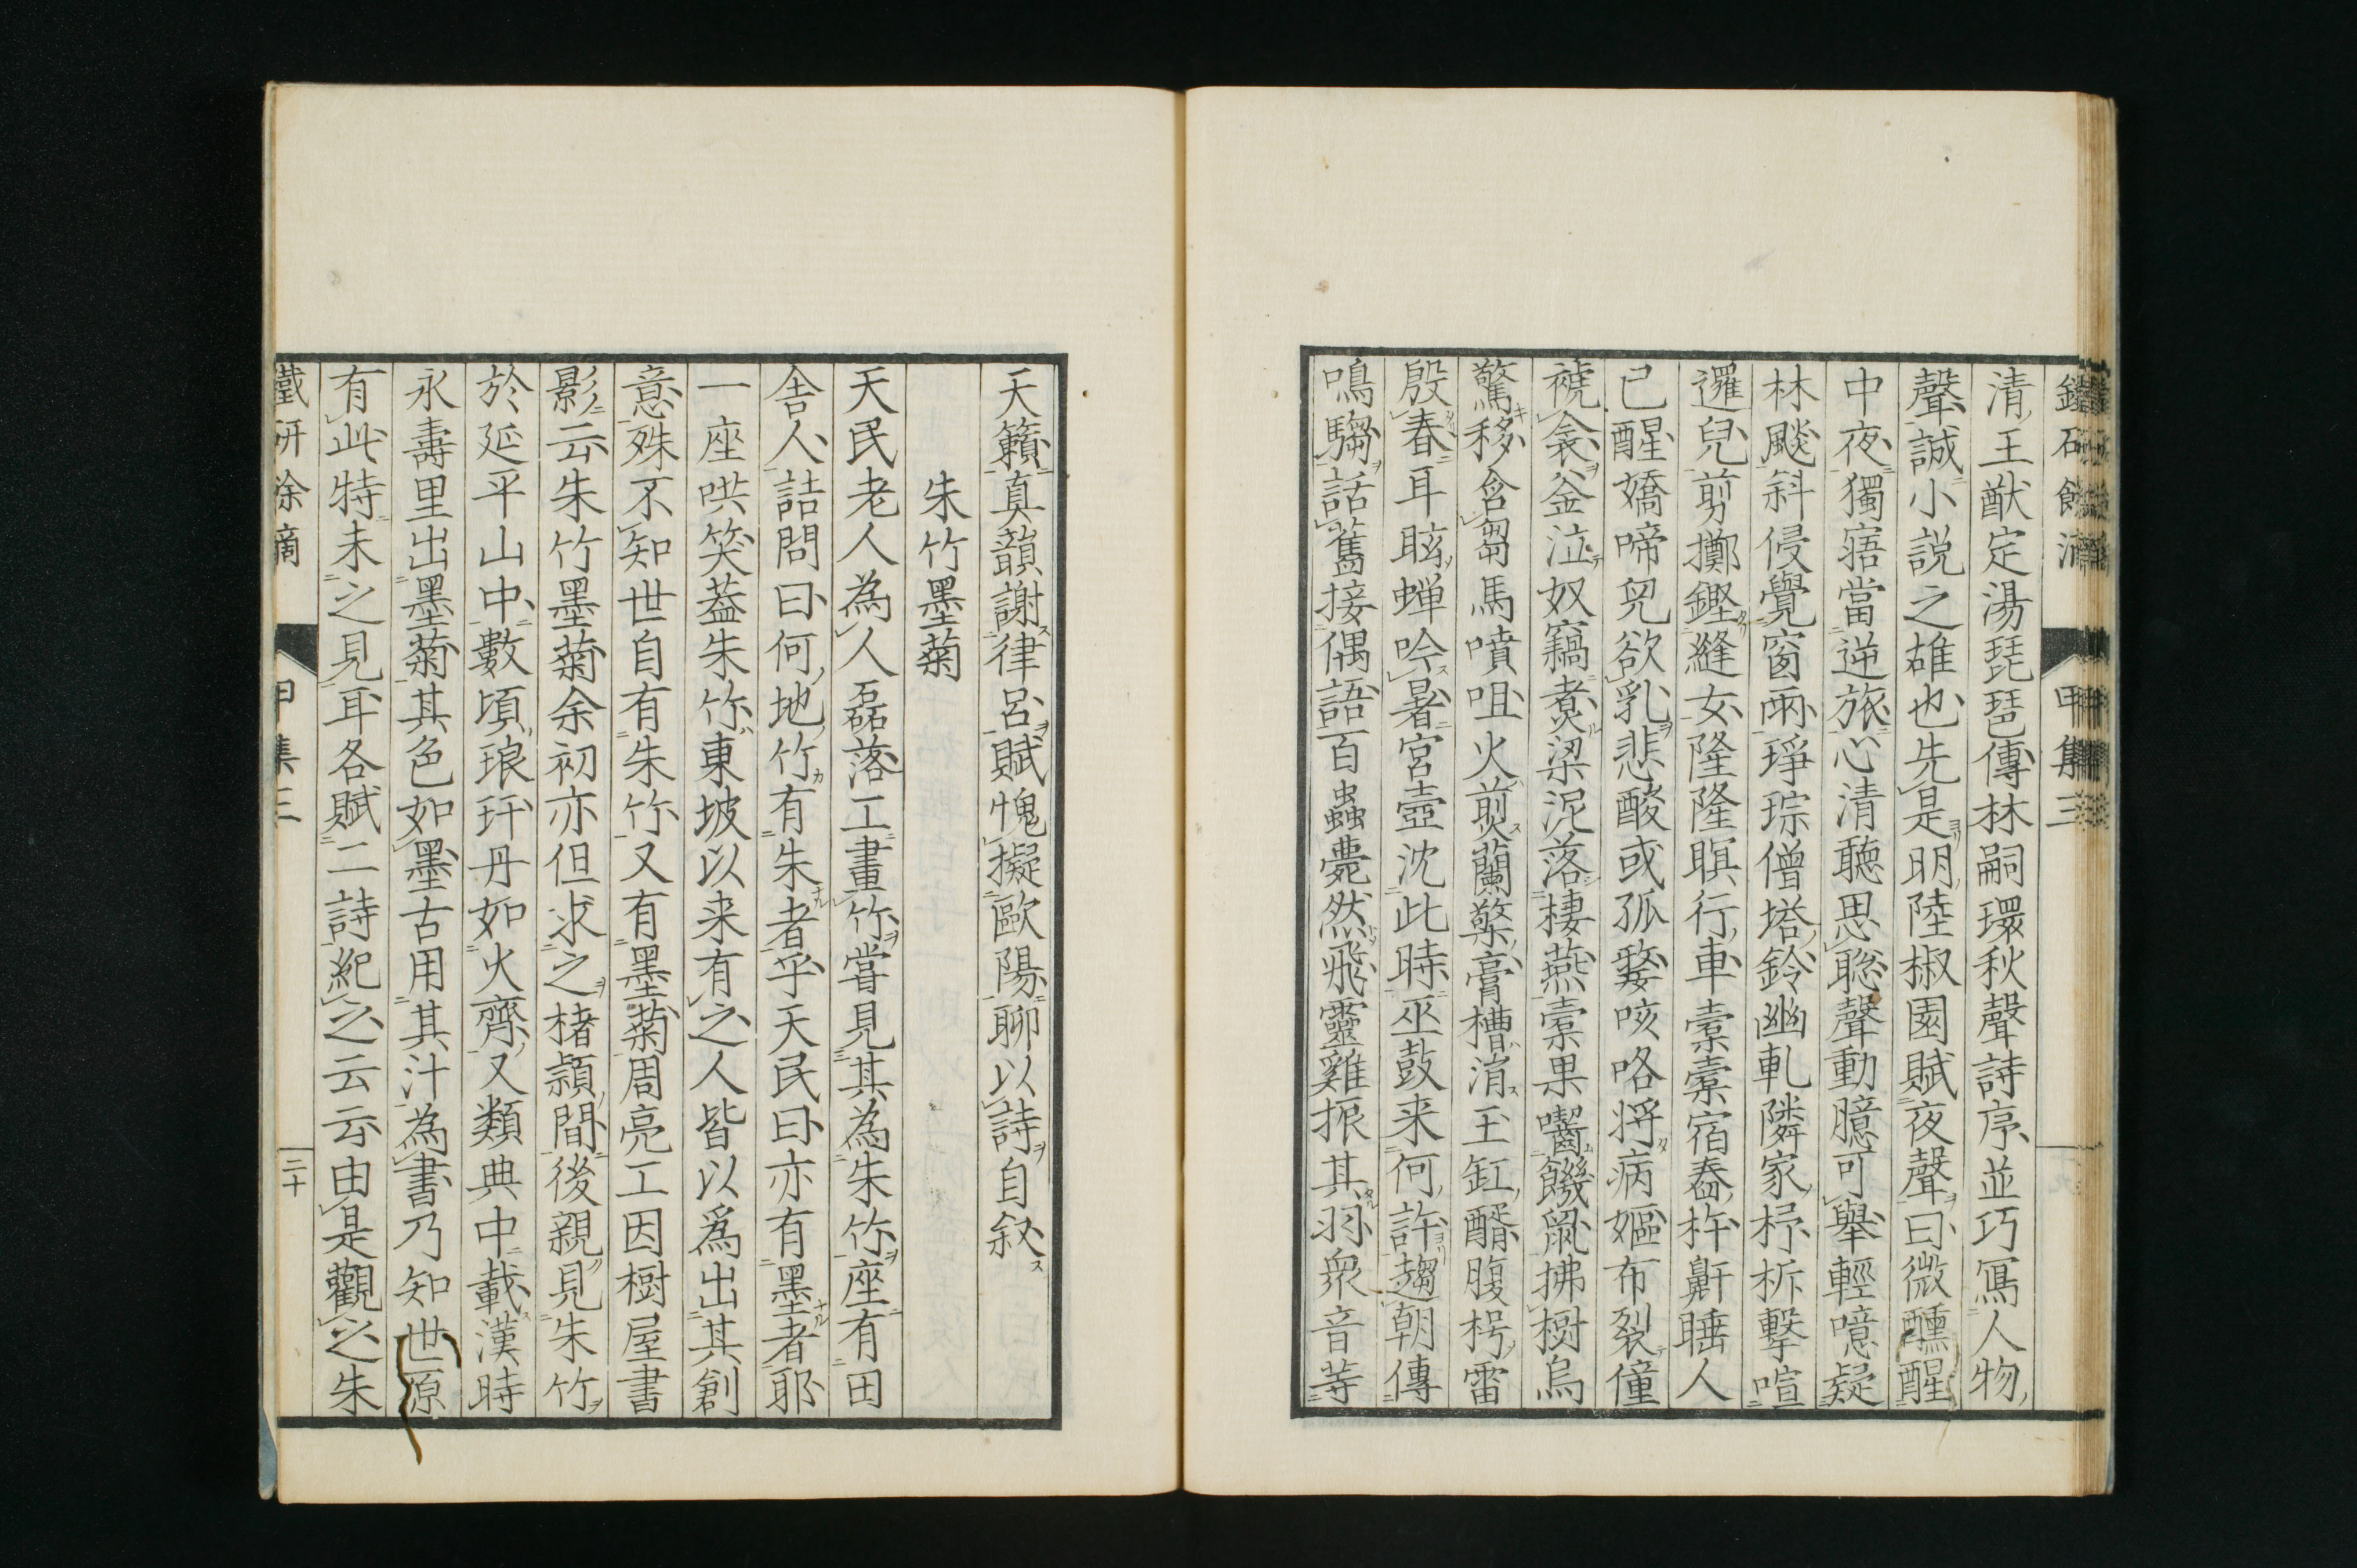 甲集三
清王猷定湯琵琶傳林嗣環秋聲詩序並巧寫人物
聲誠小說之雄也先是明陸椒園賦夜聲曰微醺醒
中夜獨寤當逆旅心清聽思聡聲動臆可舉輕噫疑
林颸斜侵覺窗雨琤琮僧塔鈴幽軋隣家杼柝擊喧
邏兒剪擲鏗縫女隆隆瞑行車橐橐宿舂杵鼾睡人
已醒嬌啼兒欲乳悲酸或孤嫠咳咯將病嫗布裂僮
褫衾釜泣奴竊煮梁泥落棲燕橐果囓饑鼠拂樹烏
驚移含芻馬噴咀火煎蘭檠膏槽消玉缸醑腹枵雷
殷春耳眩蝉吟暑宮壺沈此時巫鼓来何許趨朝傳
鳴騶話舊接偶語百蟲薨然飛靈雞振其羽衆音等
天籟真韻謝律呂賦愧擬歐陽聊以詩自叙
朱竹墨菊
天民老人為人磊落工畫竹嘗見其為朱竹座有田
舎人詰問曰何地竹有朱者乎天民曰亦有墨者耶
一座哄笑葢朱竹東坡以来有之人皆以爲出其創
意殊不知世自有朱竹又有墨菊周亮工因樹屋書
影云朱竹墨菊余初亦但求之楮頴間後親見朱竹
於延平山中數頃琅玕丹如火齊又類典中載漢時
永壽里出墨菊其色如墨古用其汁為書乃知世原
有此特未之見耳各賦二詩紀之云云由是觀之朱
鐵研余滴　甲集三　二十